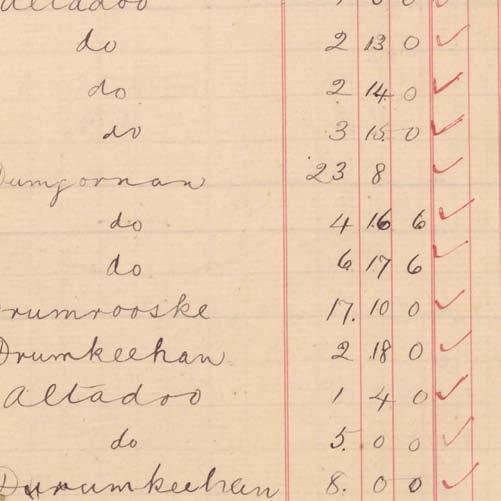 Altadoo 1 0 0 ✓
do 2 13 0 ✓
do 2 14 0 ✓
do 3 15 0 ✓
Dumgornan 23 8 ✓
do 4 16 6 ✓
do 6 17 6 ✓
rumrooske 17. 10 0 ✓
Drumkeehan 2 18 0 ✓
Altadoo 1 4 0 ✓
do 5. 0 0 ✓
Drumkeehan 8. 0 0 ✓